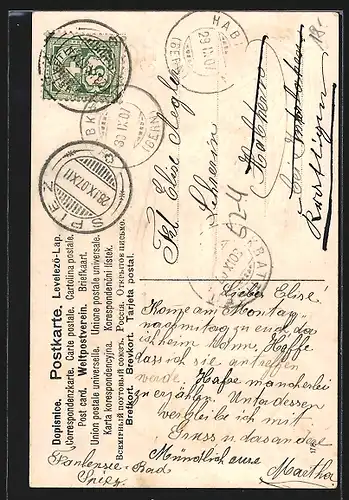 Dopisnice. Postkarte. Levelező-Lap.
Correspondenzkarte. Carte postale. Cartolina postale.
Post card. Weltpostverein. Briefkaart.
Union postale universelle. Unione postale universale.
Karta korespondencyjna. Korespondenční lístek.
Всемірный почтовый союзъ. Россія. Открытое письмо.
Brefkort. Brevkort. Tarjeta postal.
SPIEZ
28.IX.07.XII
HAB
(BERN)
29.IX.07
30.IX.07
(BERN)
18-
Frl. Elise
Lehrerin
Habkern
Krattigen
524
KRATT
Liebe Elise!
Kome am Montag-
nachmittag zu
Hoffe
dass ich sie antreffen
werde. Habe mancherlei
zu erzählen. Unterdessen
verbleibe ich mit
Gruss
Mündlich eure
Martha
Faulensee-Bad
Spiez